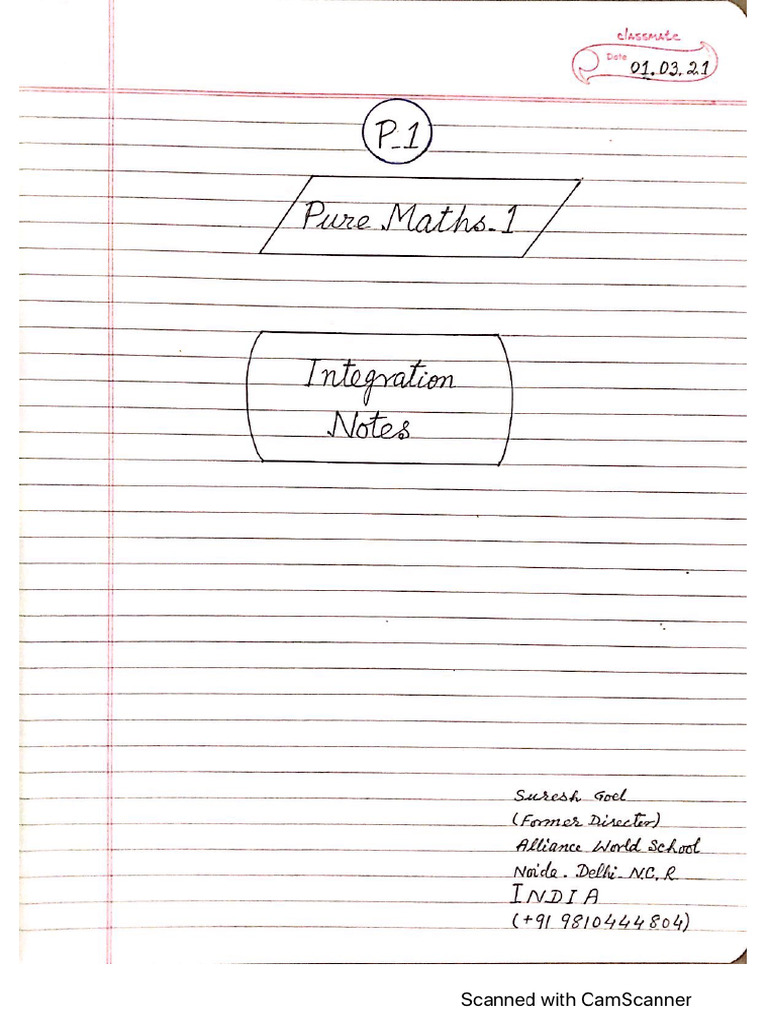 classmate
Date
01.03.21
P-1
Pure Maths-1
Integration
Notes
Suresh Goel
(Former Director)
Alliance World School
Noida. Delhi- N.C.R
INDIA
(+91 9810444804)
Scanned with CamScanner